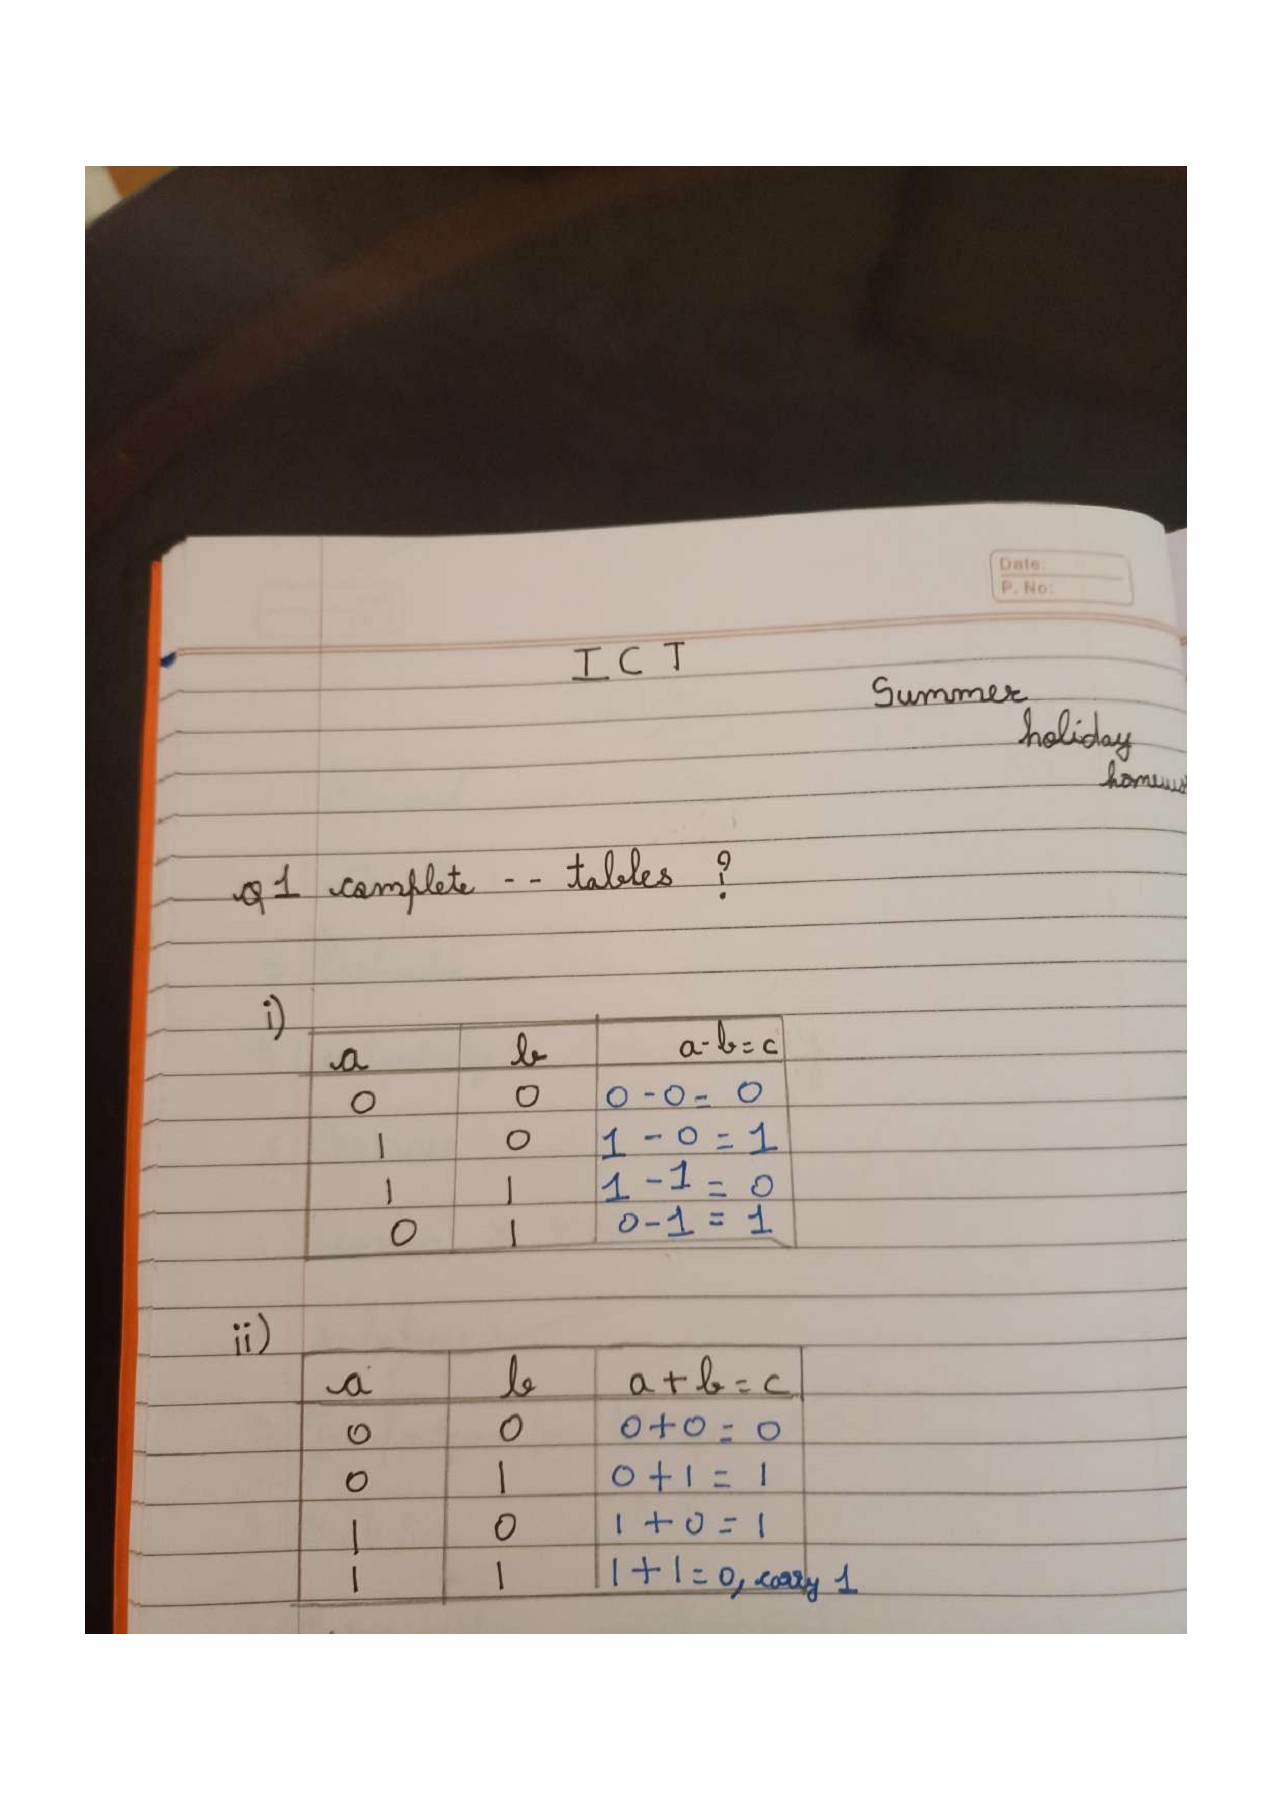 Date:
P. No:
ICT
Summer
holiday
Q1 complete -- tables ?
i)
a b a-b=c
0 0 0-0= 0
1 0 1-0=1
1 1 1-1=0
0 1 0-1=1
ii)
a b a+b=c
0 0 0+0=0
0 1 0+1=1
1 0 1+0=1
1 1 1+1=0, carry 1